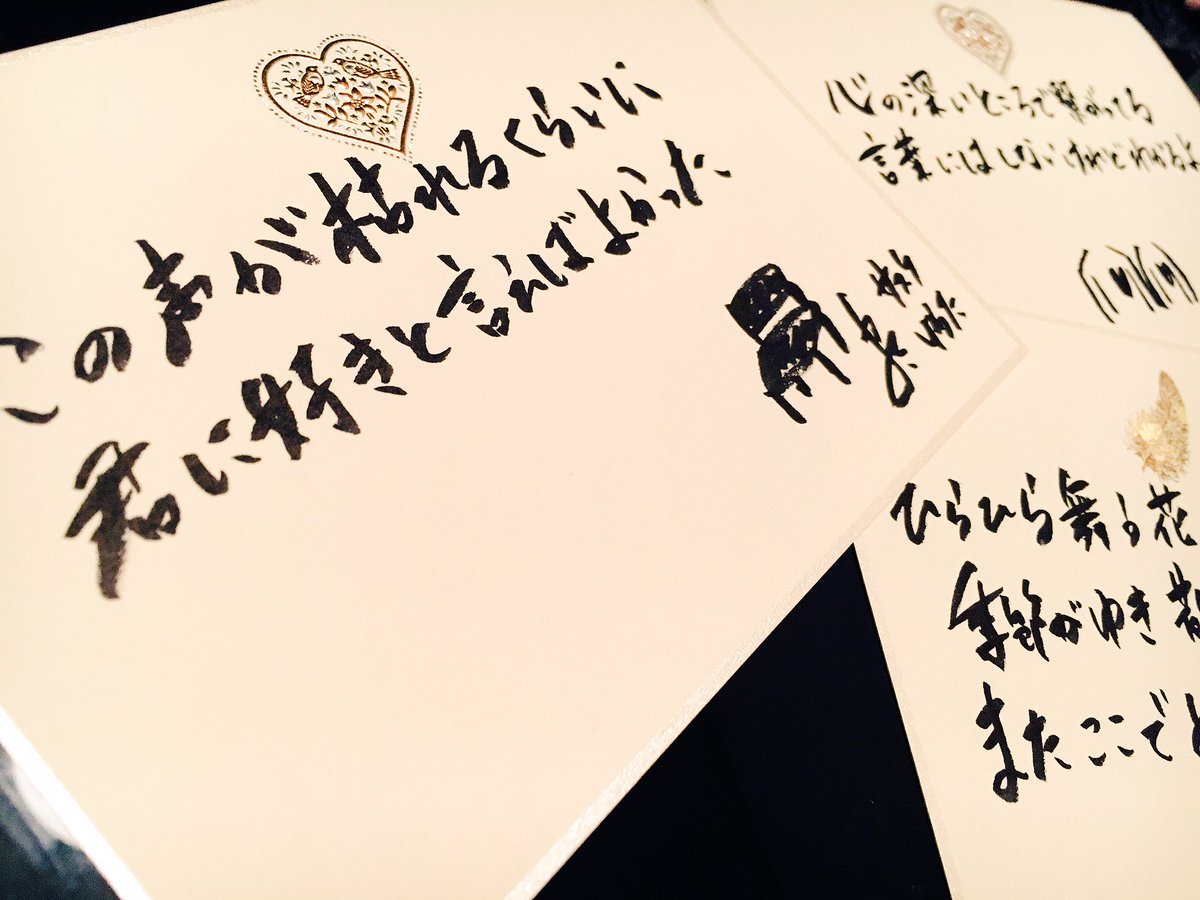 この声が枯れるくらいに
君に好きと言えばよかった
心の深いところで繋がってる
言葉にはしないけれどわかるよ
ひらひら舞う花
季節がゆき
またここで